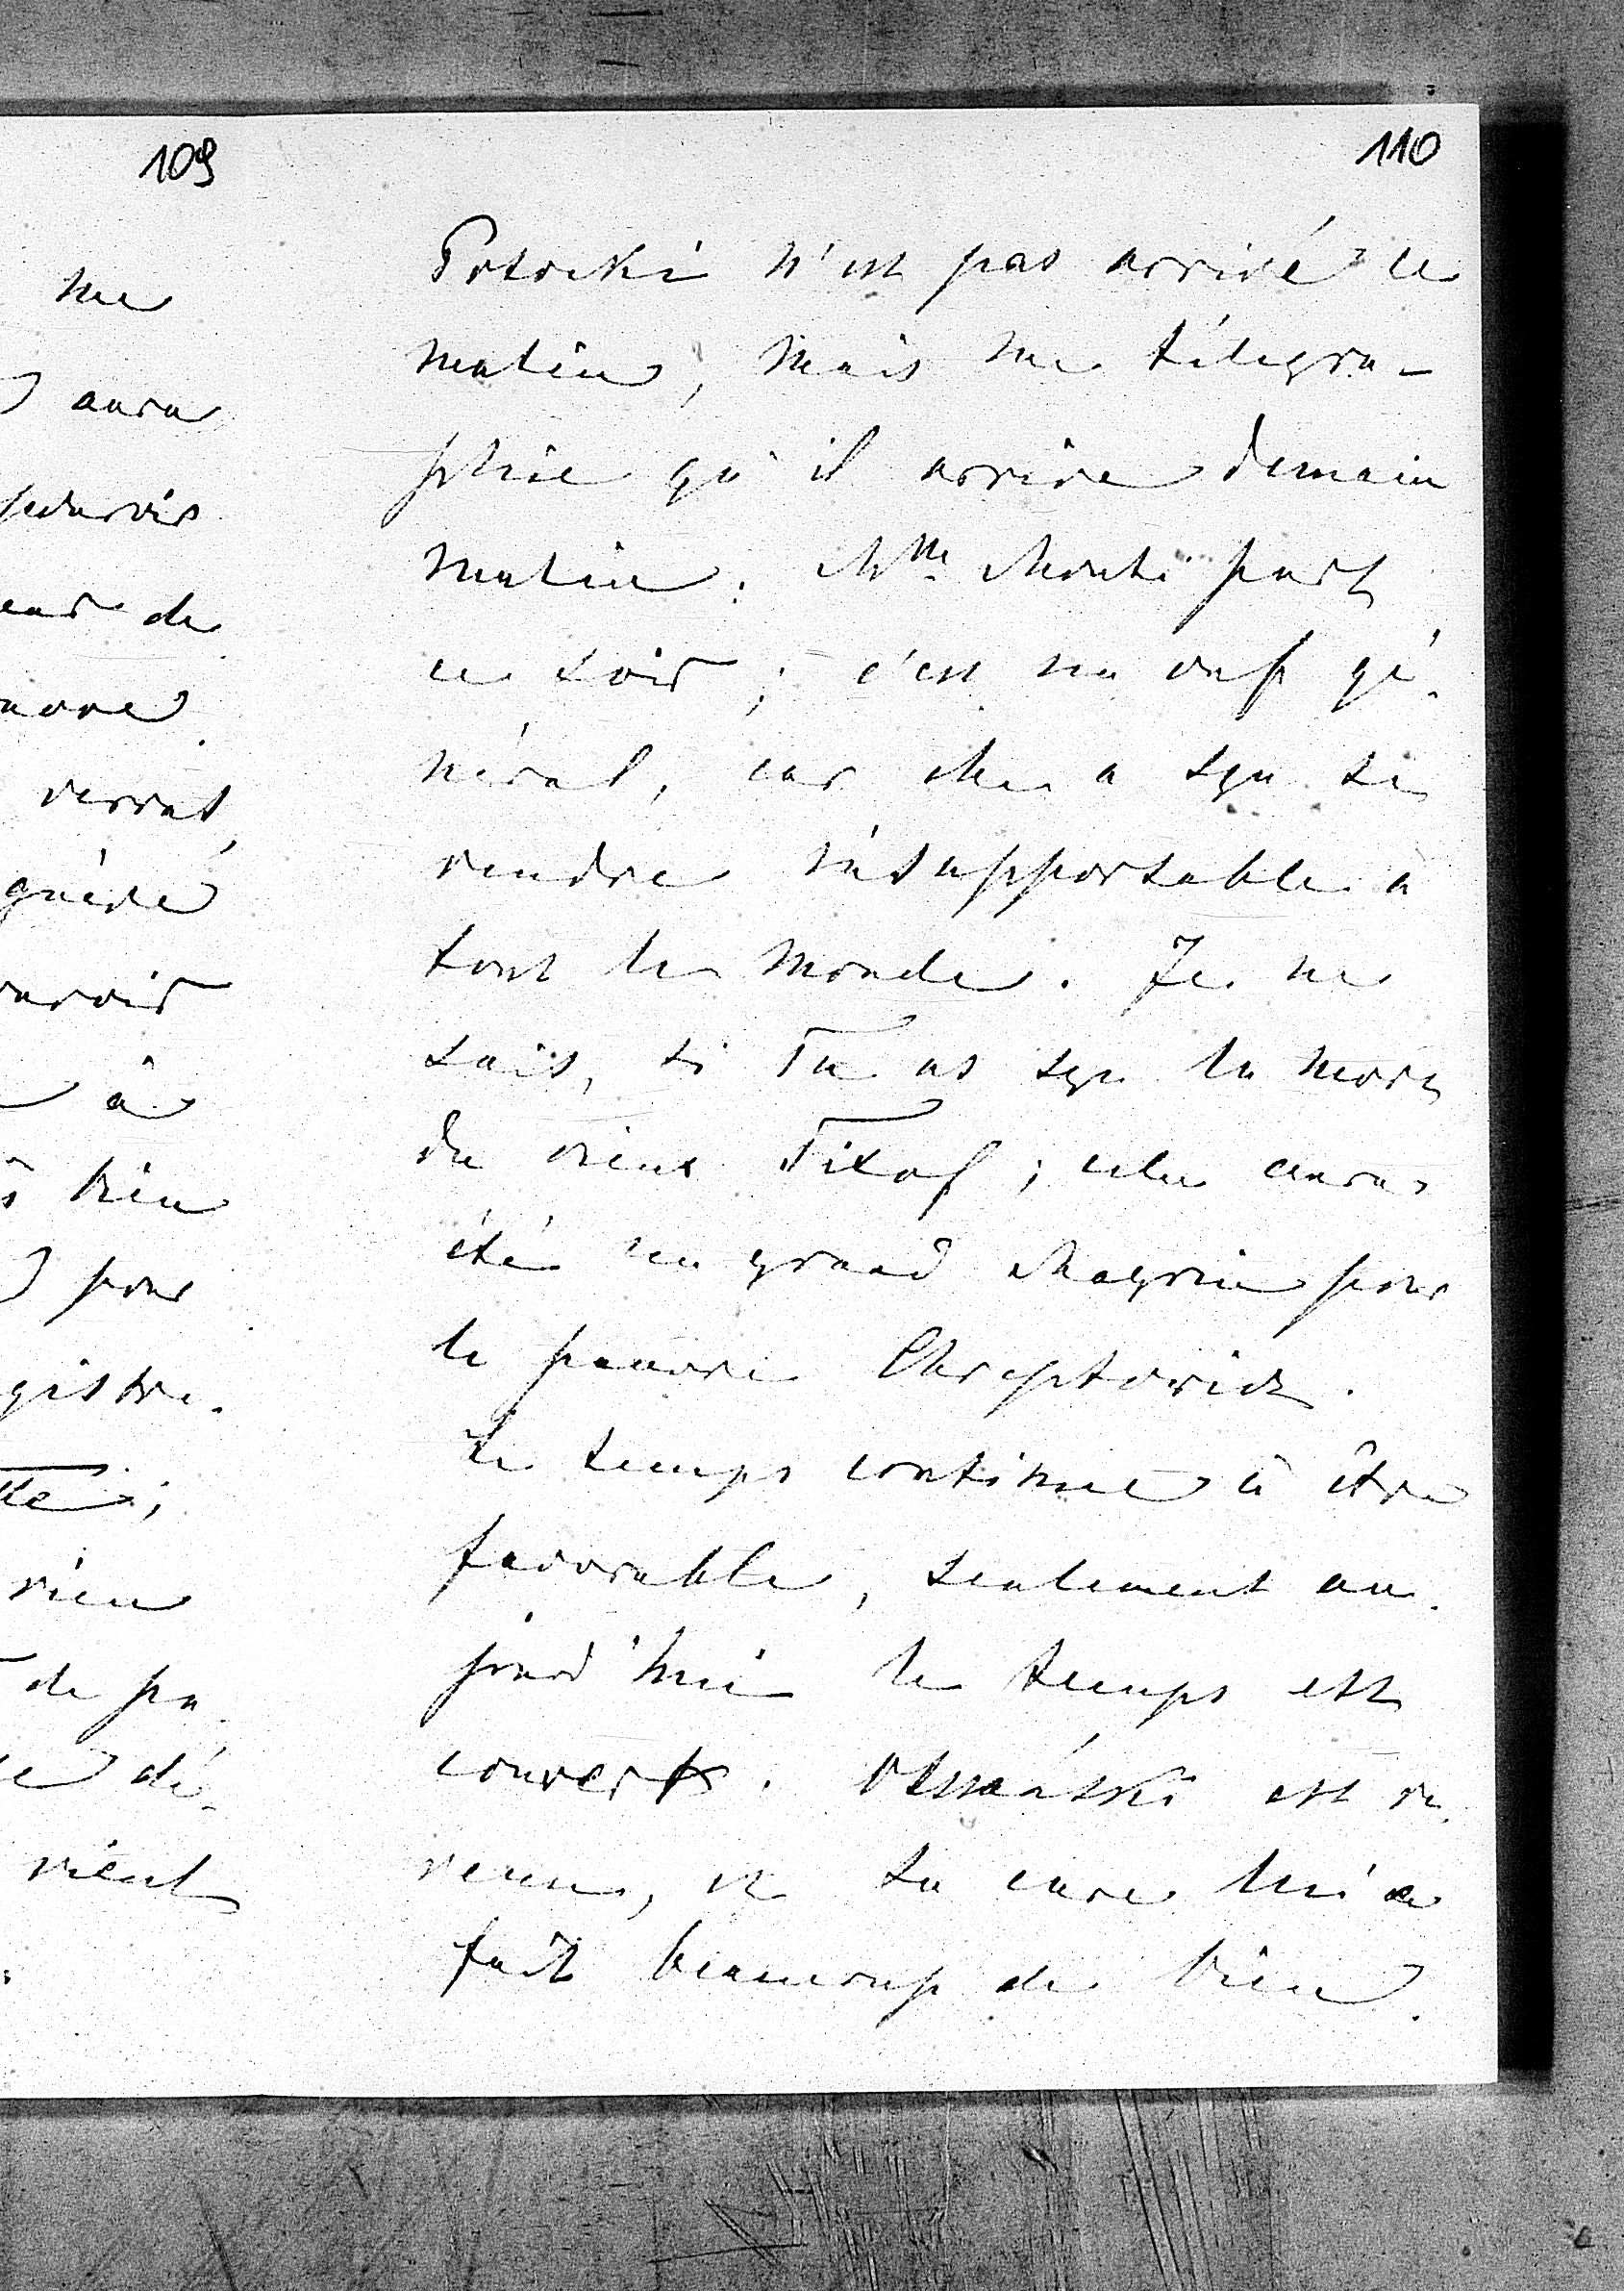 109
me
aura
de
verrat,
guéré
à
bien
pour
gistre.
rien
de pa
dé-
vient
110
Potocki n'est pas arrivé ce
matin, mais me télégra-
phie qu'il arrive demain
matin. Mme Monti part
ce soir ; c'est un ouf gé-
néral, car elle a sçu se
rendre insupportable à
tout le monde. Je ne
sais, si Tu as sçu la mort
du vieux Titof ; cela aura
été un grand chagrin pour
le pauvre Chreptovich.
Le temps continue à être
favorable, seulement au-
jourd'hui le temps est
couvert. est re-
venu, et sa cure lui a
fait beaucoup de bien.